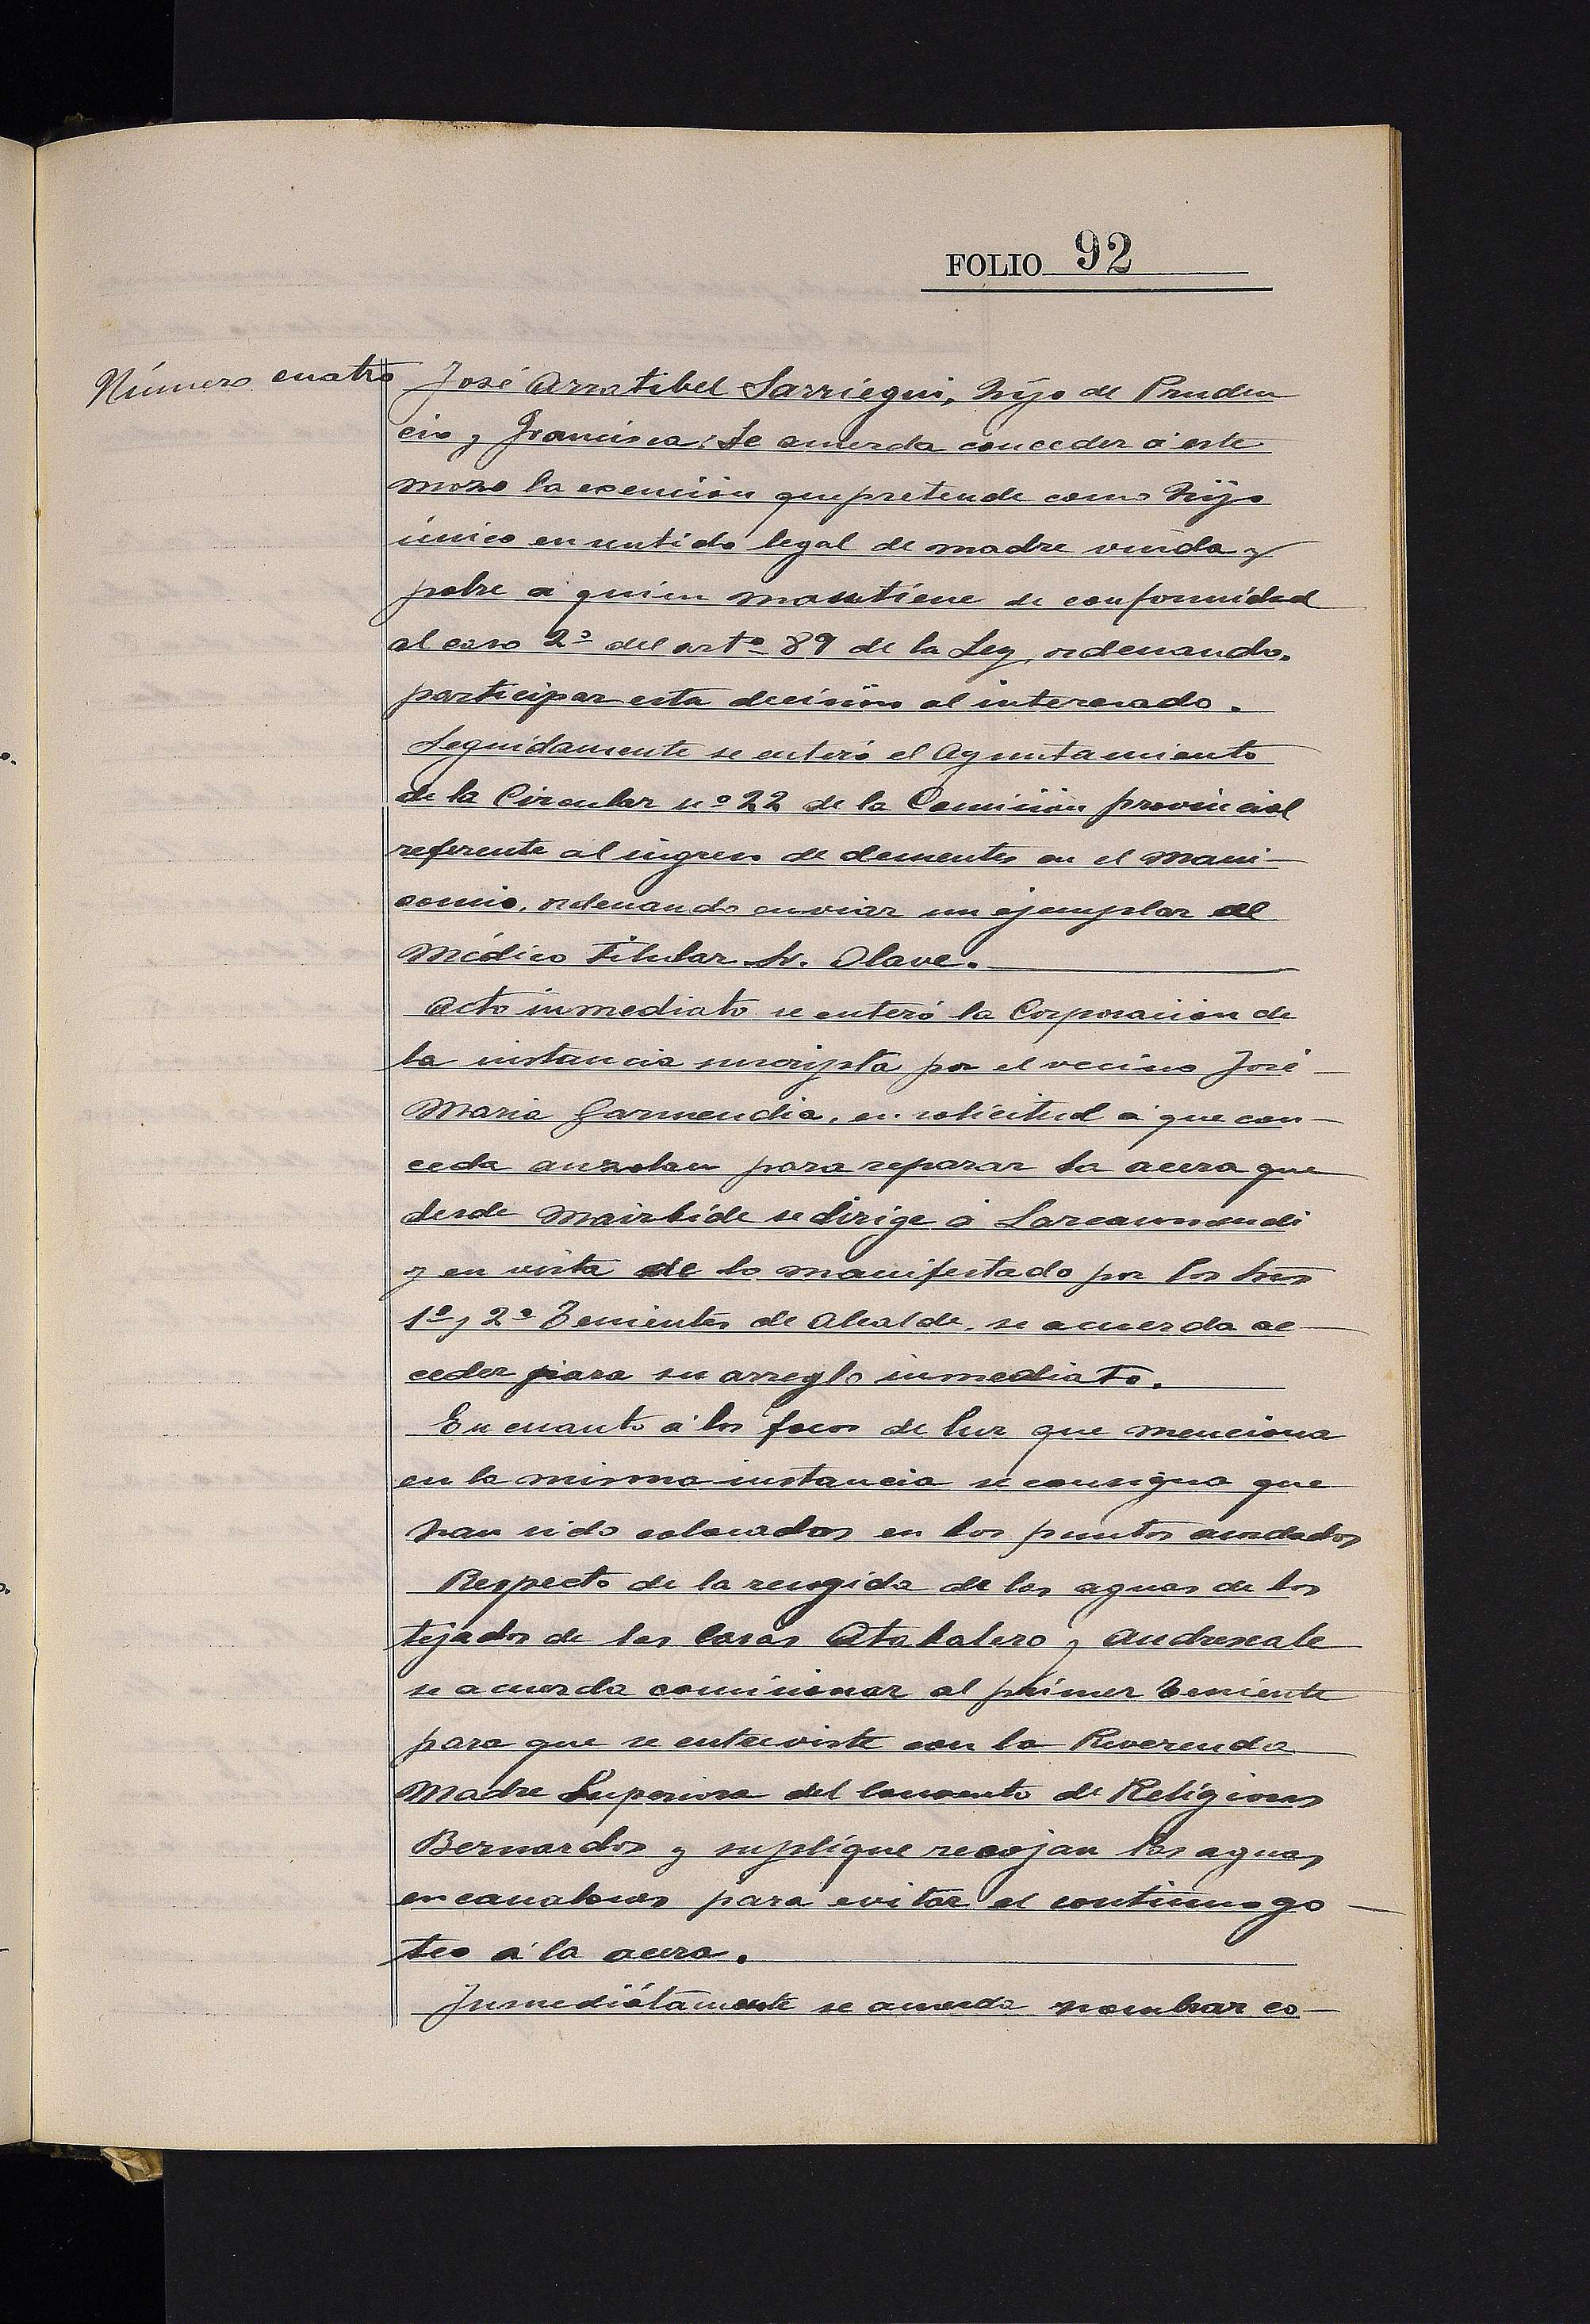 FOLIO 92
Número cuatro
José Arratibel Sarriegui, hijo de Pruden
cio y Francisca: Se acuerda conceder á este
mozo la exención que pretende como hijo
único en sentido legal de madre viuda y
pobre á quien mantiene de conformidad
al caso 2º del artº 89 de la Ley, ordenando.
participar esta decisión al interesado.
Seguidamente se enteró el Ayuntamiento
de la Circular nº 22 de la Comisión provincial
referente al ingreso de dementes en el Mani-
comio, ordenando enviar un ejemplar al
Médico Titular Sr. Olave.
Acto inmediato se enteró la Corporación de
la instancia suscripta por el vecino José
Maria Garmendia, en solicitud á que con-
ceda auzolan para reparar la acera que
desde Mairbide se dirige á Larcaumendi
y en vista de lo manifestado por los Sres
1º y 2º Tenientes de Alcalde, se acuerda ac-
ceder para su arreglo inmediato.
En cuanto á los focos de luz que menciona
en la misma instancia se consigna que
han sido colocados en los puntos acordados
Respecto de la recogida de las aguas de los
tejados de las Casas Atabalero y Andreseale
se acuerda comisionar al primer Teniente
para que se entreviste con la Reverenda
Madre Superiora del Convento de Religiosas
Bernardos y suplique recojan las aguas
en canalones para evitar el continuo go
teo á la acera.
Inmediátamente se acuerda nombrar co-